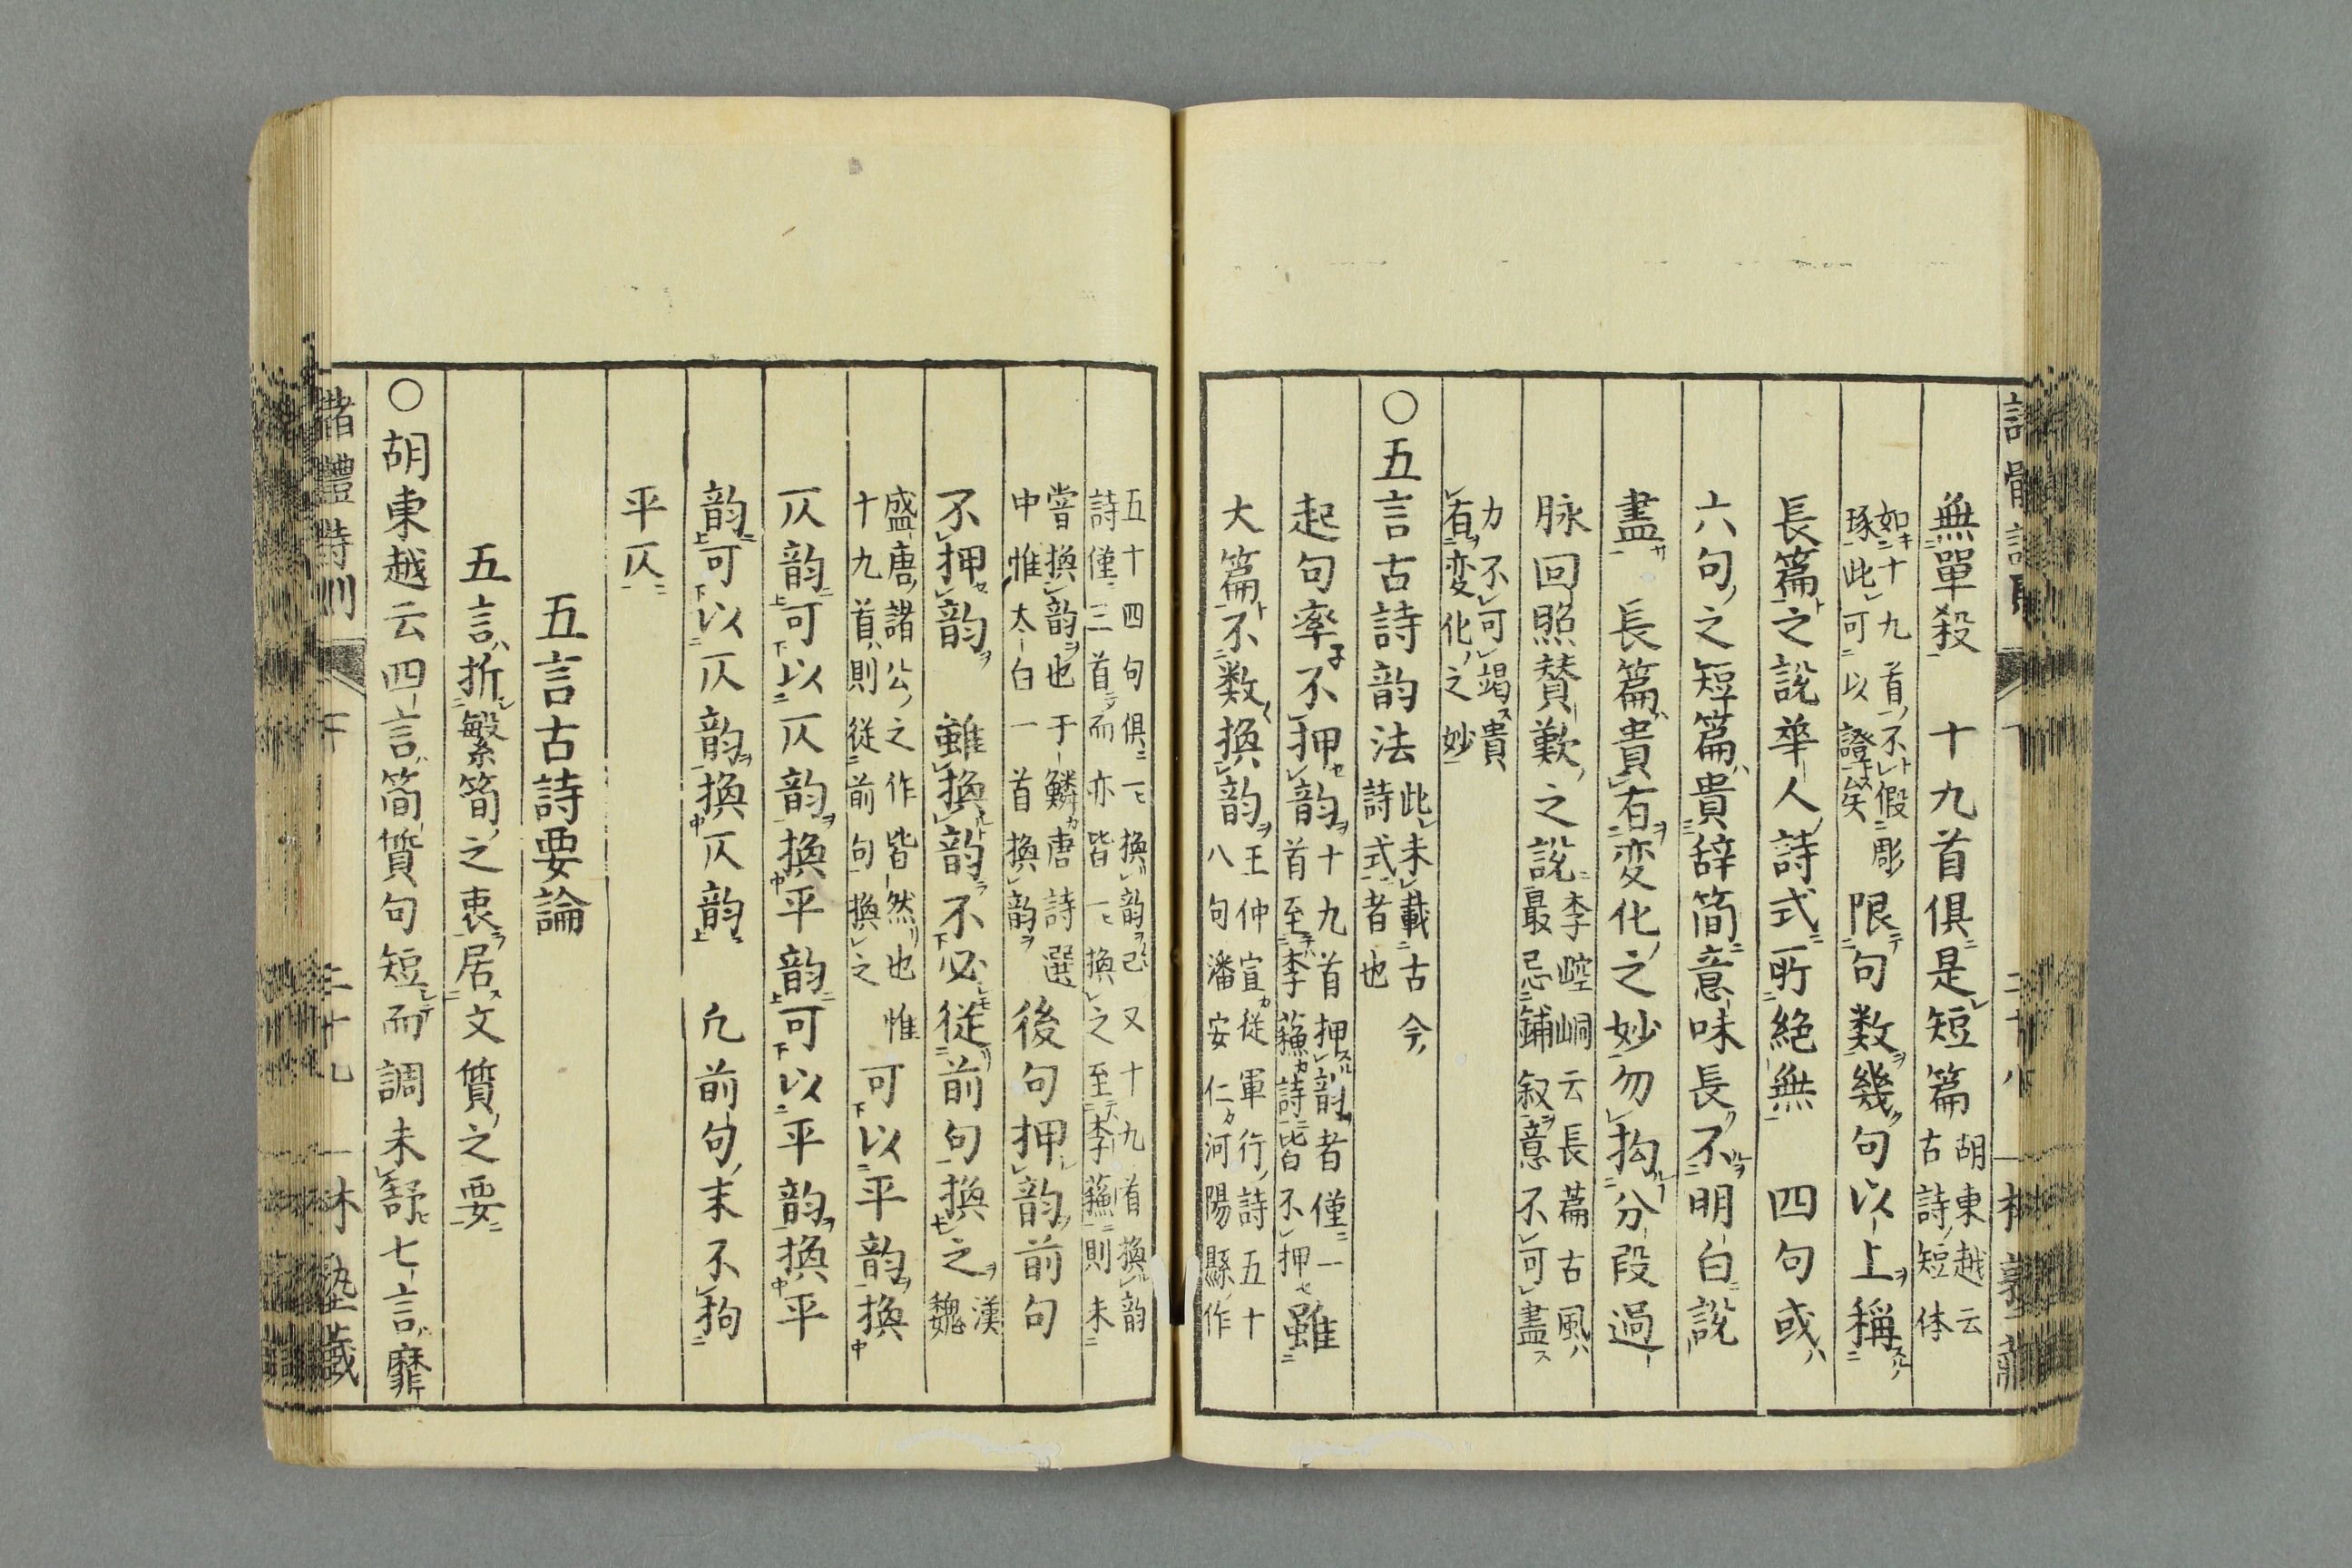 無單殺　十九首俱是短篇胡東越云古詩短体
如十九首不假彫琢此可以證矣限句数幾句以上稱
長篇之説華人詩式所絶無　四句或
六句之短篇貴辞簡意味長不明白説
盡　長篇貴有変化之妙勿拘分段過
脉回照賛歎之説李崆峒云長篇古風最忌鋪叙意不可盡
力不可竭貴有変化之妙
〇五言古詩韵法此未載古今詩式者也
起句率不押韵十九首押韵者僅一首至李蘓詩皆不押雖
大篇不数換韵王仲宣従軍行詩五十八句潘安仁河陽縣作
五十四句俱一換韵已又十九首換韵詩僅三首而亦皆一換之至李蘓則未
嘗換韵也于鱗唐詩選中惟太白一首換韵後句押韵前句
不押韵　雖換韵不必従前句換之漢魏
盛唐諸公之作皆然也惟十九首則従前句換之可以平韵換
仄韵可以仄韵換平韵可以平韵換平
韵可以仄韵換仄韵　凢前句末不拘
平仄
五言古詩要論
五言折繁簡之衷居文質之要
〇胡東越云四言簡質句短而調未舒七言靡
諸體詩則
下
二十九